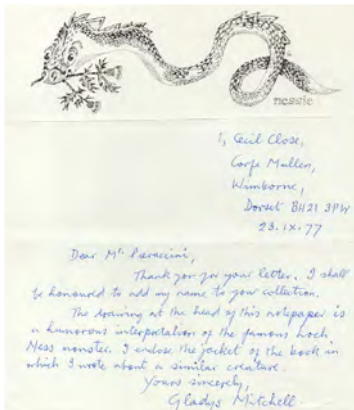 nessie
1, Cecil Close,
Corfe Mullen,
Wimborne,
Dorset BH21 3PW
23.IX.77
Dear Mr. Pieraccini,
Thank you for your letter. I shall
be honoured to add my name to your collection.
The drawing at the head of this notepaper is
a humorous interpretation of the famous Loch
Ness monster. I enclose the jacket of the book in
which I wrote about a similar creature.
Yours sincerely,
Gladys Mitchell